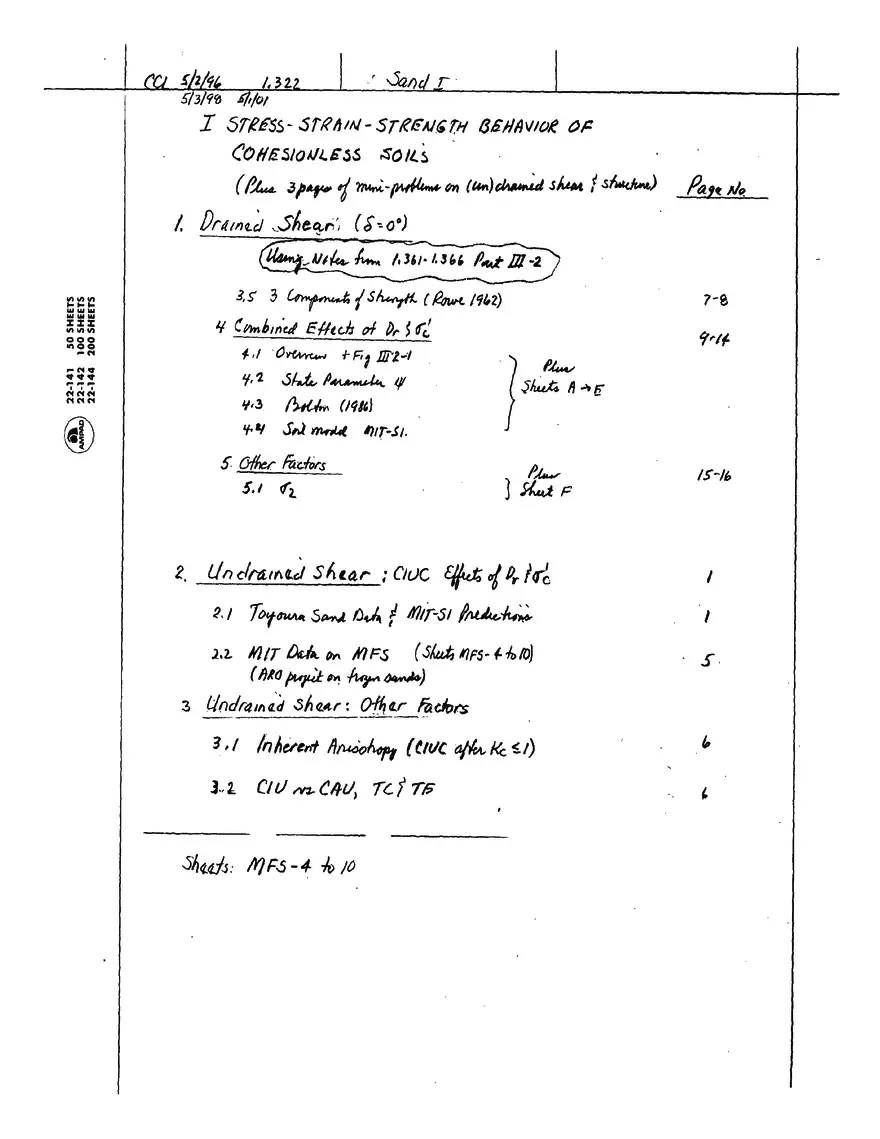 CCL 5/2/96 1.322 Sand I
5/3/98 5/1/01
I STRESS-STRAIN-STRENGTH BEHAVIOR OF
COHESIONLESS SOILS
(Plus 3 pages of mini-problems on (un)drained shear & structure) Page No
1. Drained Shear: (δ=0°)
Using Notes from 1.361-1.366 Part III-2
3.5 3 Components of Strength (Rowe 1962) 7-8
4 Combined Effects of Dr & σ'c 9-14
4.1 Overview + Fig III2-1
4.2 State Parameter ψ
4.3 Bolton (1986)
4.4 Soil model MIT-S1.
Plus
Sheets A → E
5. Other Factors 15-16
5.1 σ2
Plus
Sheet F
2. Undrained Shear ; CIUC Effects of Dr & σ'c 1
2.1 Toyoura Sand Data & MIT-S1 Predictions 1
2.2 MIT Data on MFS (Sheets MFS-4 to 10) 5
(ARO project on frozen sands)
3 Undrained Shear: Other Factors
3.1 Inherent Anisotropy (CIUC after Kc ≤ 1) 6
3.2 CIU vs CAU, TC & TE 6
Sheets: MFS-4 to 10
22-141 50 SHEETS
22-142 100 SHEETS
22-144 200 SHEETS
AMPAD